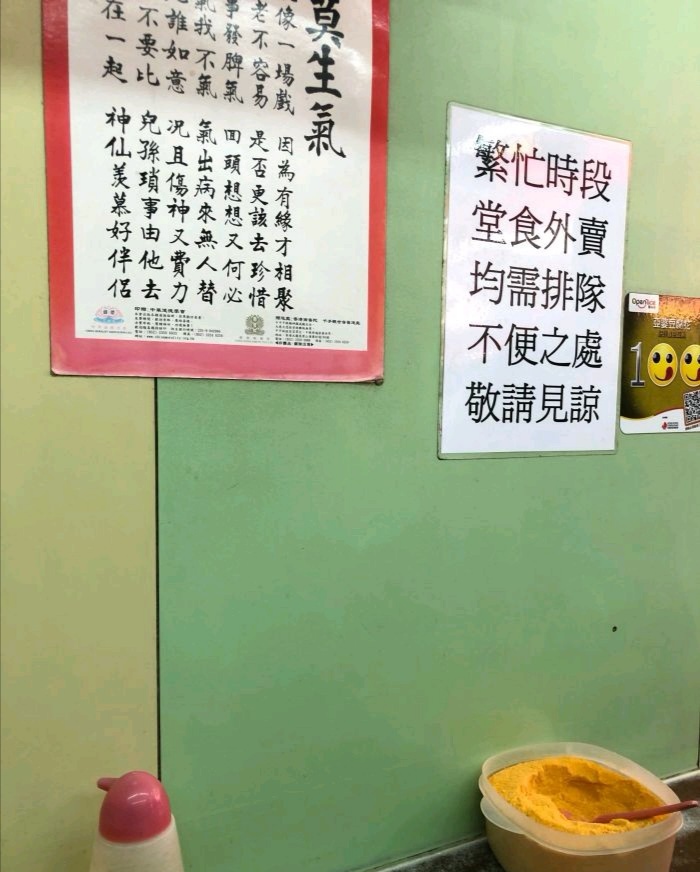 莫生氣
像一場戲 因為有緣才相聚
老不容易 是否更該去珍惜
事發脾氣 回頭想想又何必
氣我不氣 氣出病來無人替
誰如意 況且傷神又費力
不要比 兒孫瑣事由他去
在一起 神仙羨慕好伴侶
繁忙時段
堂食外賣
均需排隊
不便之處
敬請見諒
OpenRice
100